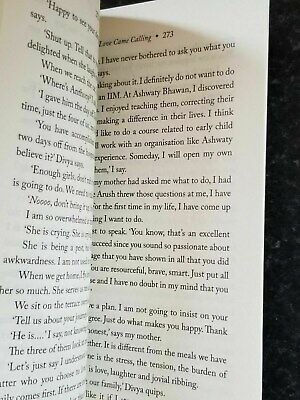 'Happy to see your
says.
'Shut up. Tell that
delighted when she laughs
'When we reach the
'Where's Anthony?' I
'I gave him the day off
time, just the four of us,
'You have accom
two days off from the
believe it?' Divya says.
'Enough girls, don't
is going to do. We need to
'Nooo, don't bring it
I am so overwhelmed
'She is crying. She is
'She is being a pest,
awkwardness. I am not used
When we get home, I
ther so much. She serves us
We sit on the terrace
'Tell us about your journey
'He is....' I say, not know
The three of them look at
'Let's just say I understand
atter who you choose to
ily comes first. If there are
Love Came Calling • 273
I have never bothered to ask you what you
king about it. I definitely do not want to do
an IIM. At Ashway Bhawan, I discovered
I enjoyed teaching them, correcting their
making a difference in their lives. I think
d like to do a course related to early child
work with an organisation like Ashway
experience. Someday, I will open my own
them,' I say.
my mother had asked me what to do, I had
Arush threw those questions at me, I have
For the first time in my life, I have come up
ing I want to do.
st to speak. 'You know, that's an excellent
ucceed since you sound so passionate about
age that you have shown in all that you did
ou are resourceful, brave, smart. Just put all
d this endeavour of yours will definitely be
ve a plan. I am not going to insist on your
gree. Just do what makes you happy. Thank
onest,' says my mother.
ther. It is different from the meals we have
ne is the stress, the tension, the burden of
is love, laughter and jovial ribbing.
our family,' Divya quips.